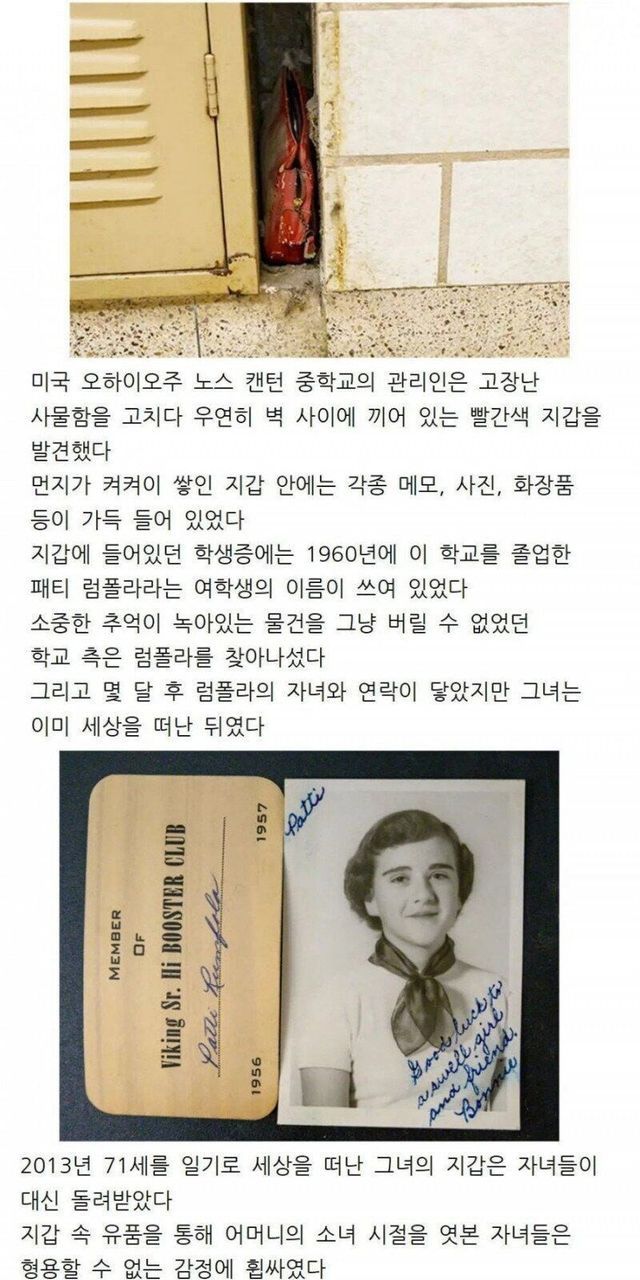 미국 오하이오주 노스 캔턴 중학교의 관리인은 고장난
사물함을 고치다 우연히 벽 사이에 끼어 있는 빨간색 지갑을
발견했다
먼지가 켜켜이 쌓인 지갑 안에는 각종 메모, 사진, 화장품
등이 가득 들어 있었다
지갑에 들어있던 학생증에는 1960년에 이 학교를 졸업한
패티 럼폴라라는 여학생의 이름이 쓰여 있었다
소중한 추억이 녹아있는 물건을 그냥 버릴 수 없었던
학교 측은 럼폴라를 찾아나섰다
그리고 몇 달 후 럼폴라의 자녀와 연락이 닿았지만 그녀는
이미 세상을 떠난 뒤였다
MEMBER
OF
Viking Sr. Hi BOOSTER CLUB
Patti Rumfola
1956
1957
Patti
Good luck to
a swell girl
and friend.
Bonnie
2013년 71세를 일기로 세상을 떠난 그녀의 지갑은 자녀들이
대신 돌려받았다
지갑 속 유품을 통해 어머니의 소녀 시절을 엿본 자녀들은
형용할 수 없는 감정에 휩싸였다